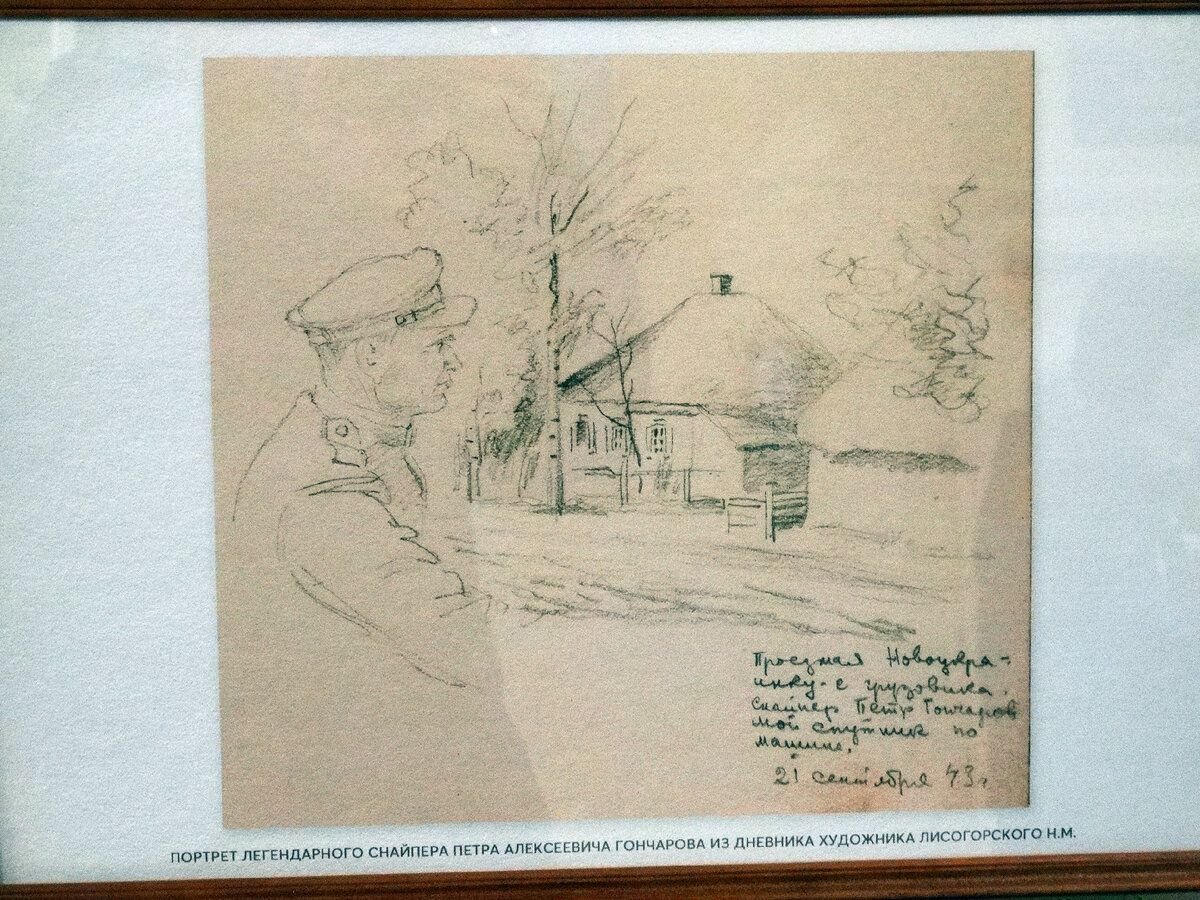 Проезжая Новоукра-
инку - с грузовика.
Снайпер Петр Гончаров
мой спутник по
машине.
21 сентября 43 г
ПОРТРЕТ ЛЕГЕНДАРНОГО СНАЙПЕРА ПЕТРА АЛЕКСЕЕВИЧА ГОНЧАРОВА ИЗ ДНЕВНИКА ХУДОЖНИКА ЛИСОГОРСКОГО Н.М.